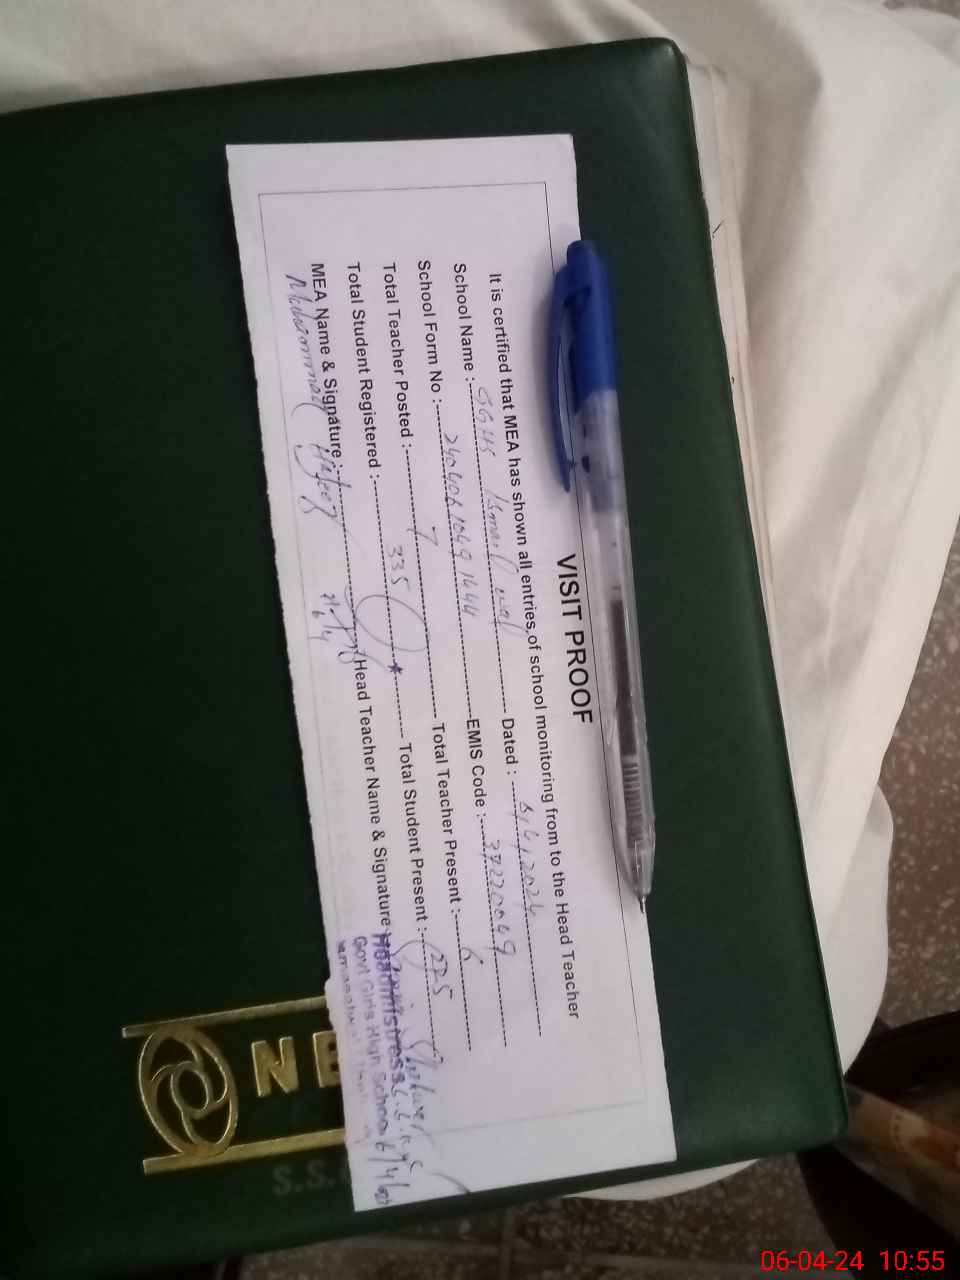 VISIT PROOF
It is certified that MEA has shown all entries, of school monitoring from to the Head Teacher
School Name : GGHS Ismail wal Dated : 6/4/2024
School Form No : EMIS Code : 37220049
Total Teacher Posted : 7 Total Teacher Present : 6
Total Student Registered : 335 Total Student Present : 225
MEA Name & Signature : Head Teacher Name & Signature
Muhammad
Headmistress
Govt Girls High School
6/4
NB
S.S.
06-04-24 10:55